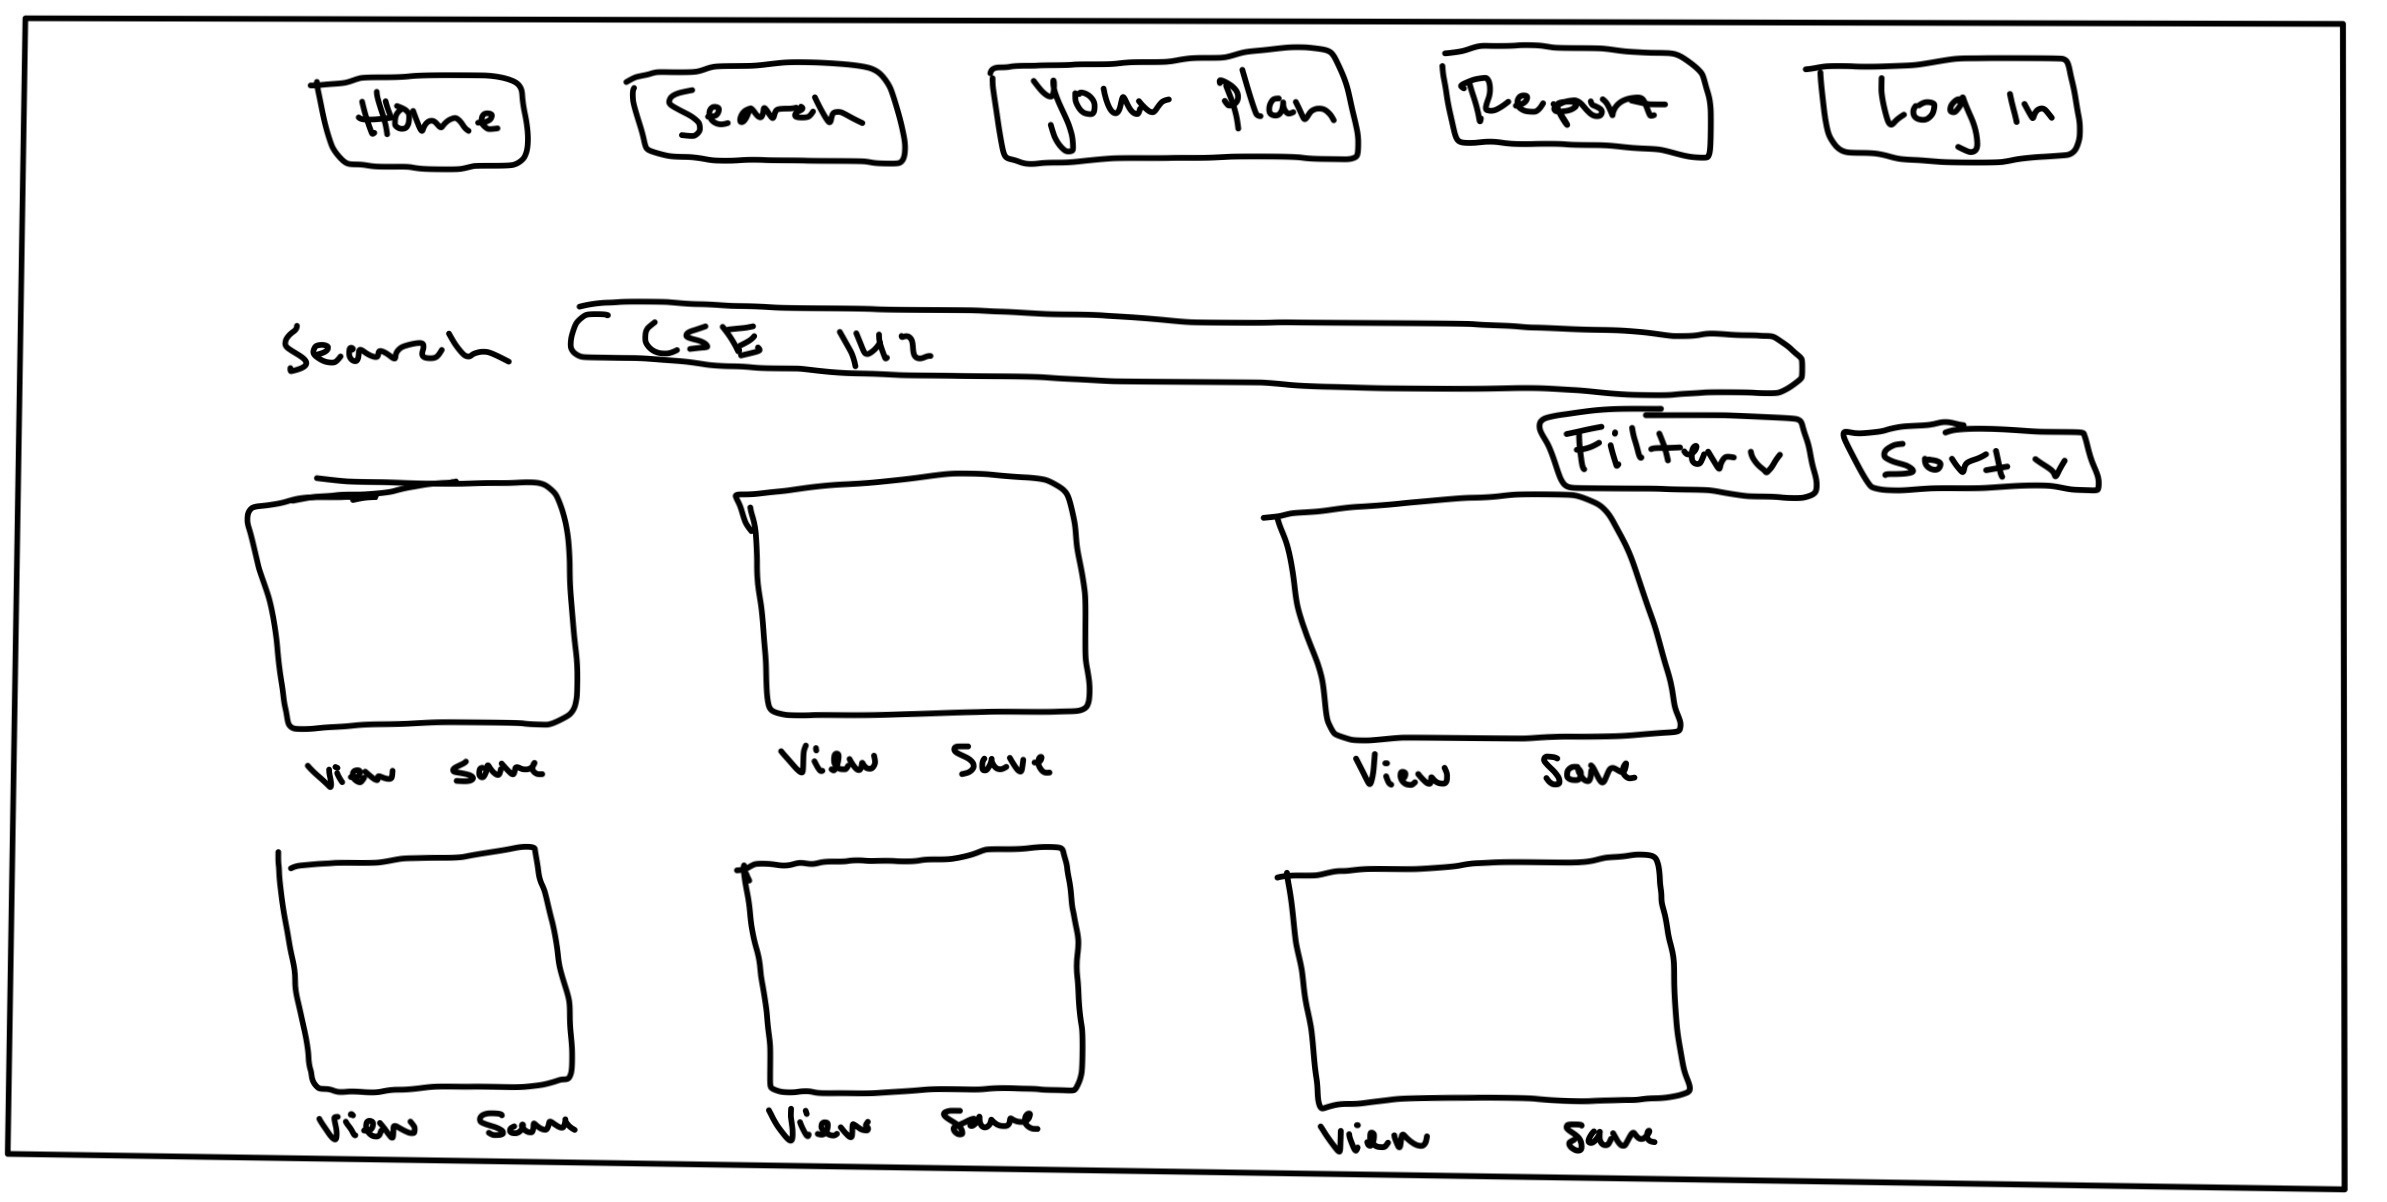 Home Search Your Plan Report Log In
Search CSE 142
Filter v Sort v
View Save View Save View Save
View Save View Save View Save